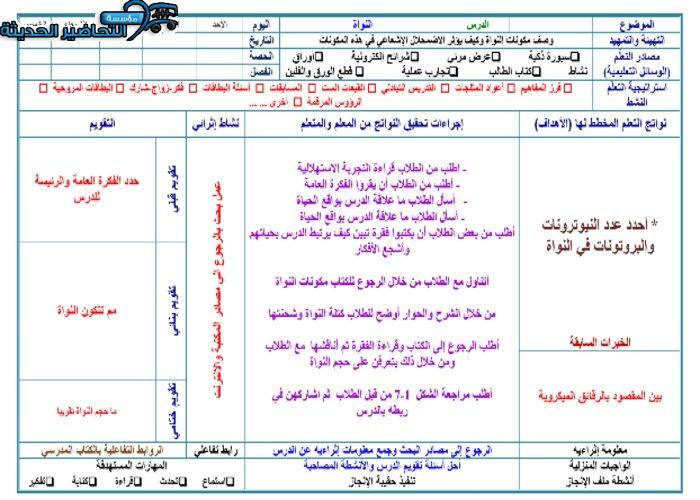 مؤسسة
التحاضير الحديثة
الموضوع
الدرس
النواة
اليوم
الأحد
التهيئة والتمهيد
وصف مكونات النواة وكيف يؤثر الاضمحلال الإشعاعي في هذه المكونات
التاريخ
مصادر التعلم
(الوسائل التعليمية)
سبورة ذكية عرض مرئي شرائح الكترونية اوراق
الحصة
نشاط كتاب الطالب تجارب عملية قطع الورق والفلين
الفصل
استراتيجية التعلم
النشط
فرز المفاهيم أعواد المثلجات التدريس التبادلي القبعات الست المسابقات أسئلة البطاقات فكر-زواج-شارك البطاقات المروحية
الرؤوس المرقمة أخرى ... ...
نواتج التعلم المخطط لها (الأهداف)
إجراءات تحقيق النواتج من المعلم والمتعلم
نشاط إثرائي
التقويم
* أحدد عدد النيوترونات
والبروتونات في النواة
الخبرات السابقة
بين المقصود بالرقائق الميكروية
- اطلب من الطلاب قراءة التجربة الاستهلالية
- أطلب من الطلاب أن يقروا الفكرة العامة
- أسأل الطلاب ما علاقة الدرس بواقع الحياة
- أسأل الطلاب ما علاقة الدرس بواقع الحياة
أطلب من بعض الطلاب أن يكتبوا فقرة تبين كيف يرتبط الدرس بحياتهم
وأشجع الأفكار
أتناول مع الطلاب من خلال الرجوع للكتاب مكونات النواة
من خلال الشرح والحوار أوضح للطلاب كتلة النواة وشحنتها
أطلب الرجوع إلى الكتاب وقراءة الفقرة ثم أناقشها مع الطلاب
ومن خلال ذلك يتعرفن على حجم النواة
أطلب مراجعة الشكل 1-7 من قبل الطلاب ثم اشاركهن في
ربطه بالدرس
عمل بحث بالرجوع الى مصادر المكتبة والانترنت
تقويم قبلي
حدد الفكرة العامة والرئيسة
للدرس
تقويم بنائي
مم تتكون النواة
تقويم ختامي
ما حجم النواة تقريبا
معلومة إثرائيه
الرجوع إلى مصادر البحث وجمع معلومات إثراءيه عن الدرس
رابط تفاعلي
الروابط التفاعلية بالكتاب المدرسي
الواجبات المنزلية
أحل أسئلة تقويم الدرس والأنشطة المصاحبة
المهارات المستهدفة
أنشطة ملف الإنجاز
تنفيذ حقيبة الإنجاز
استماع تحدث قراءة كتابة تفكير